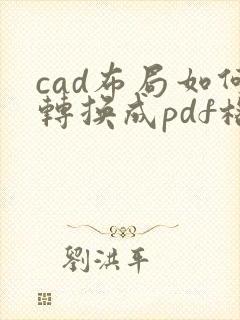 cad布局如何
轉換成pdf格
劉洪平